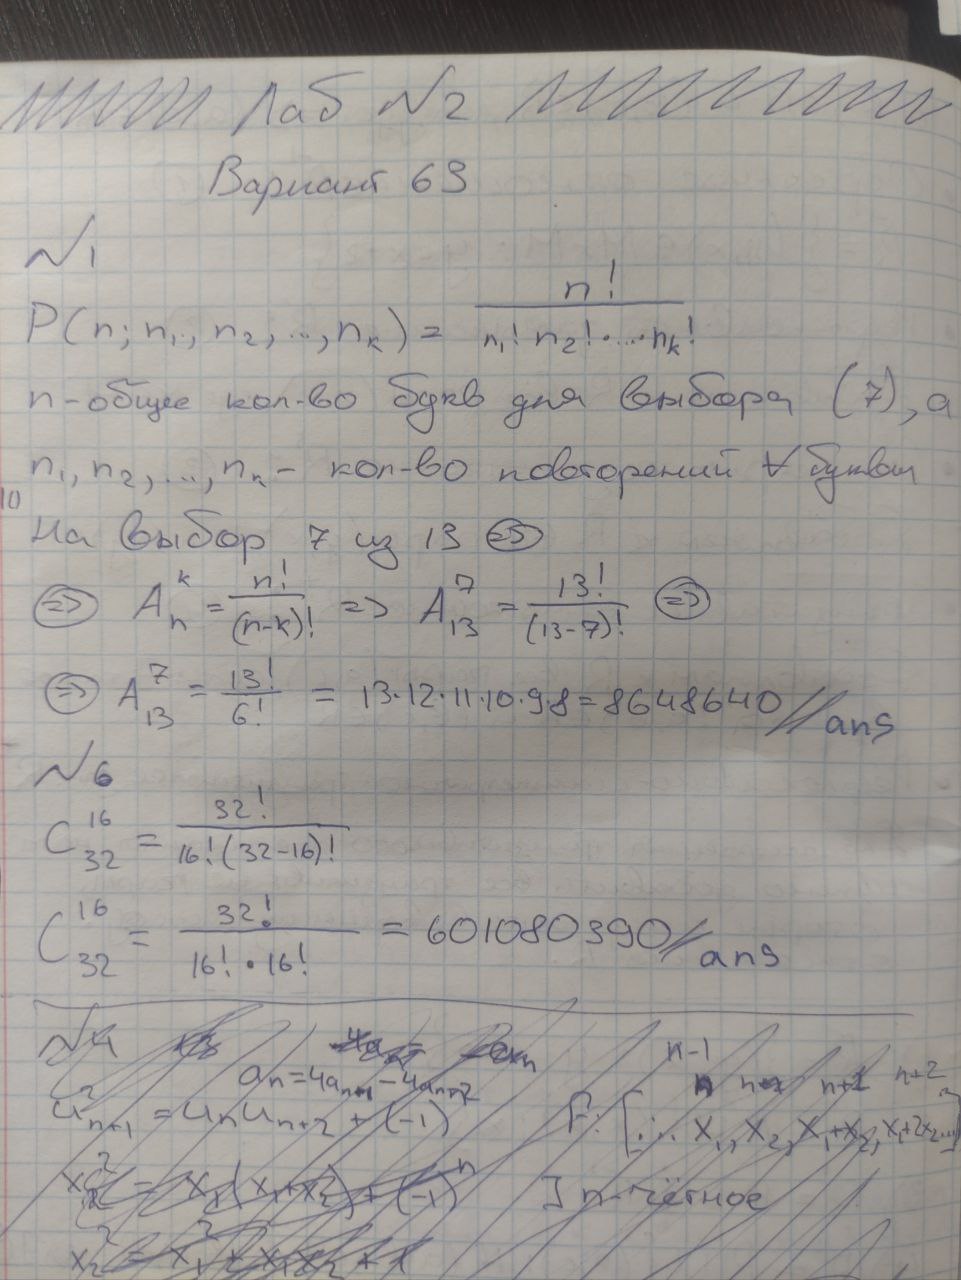 Лаб №2
Вариант 63
№1
P(n; n₁, n₂, ..., nₖ) = n! / (n₁! n₂! · ... · nₖ!)
n - общее кол-во букв для выбора (7), а
n₁, n₂, ..., nₖ - кол-во повторений ∀ буквы
10
На выбор 7 из 13 =>
=> Aₙᵏ = n! / (n-k)! => A₁₃⁷ = 13! / (13-7)! =>
=> A₁₃⁷ = 13! / 6! = 13·12·11·10·9·8 = 8648640 // ans
№6
C₃₂¹⁶ = 32! / (16! (32-16)!)
C₃₂¹⁶ = 32! / (16! · 16!) = 601080390 // ans
№4
aₙ = 4aₙ₊₁ - 4aₙ₊₂
n-1 n n+1 n+2
u²ₙ₊₁ = uₙ uₙ₊₂ + (-1)ⁿ F: [... x₁, x₂, x₁+x₂, x₁+2x₂ ...]
x₂² = x₁(x₁+x₂) + (-1)ⁿ ] n - чётное
x₂² = x₁² + x₁x₂ + 1